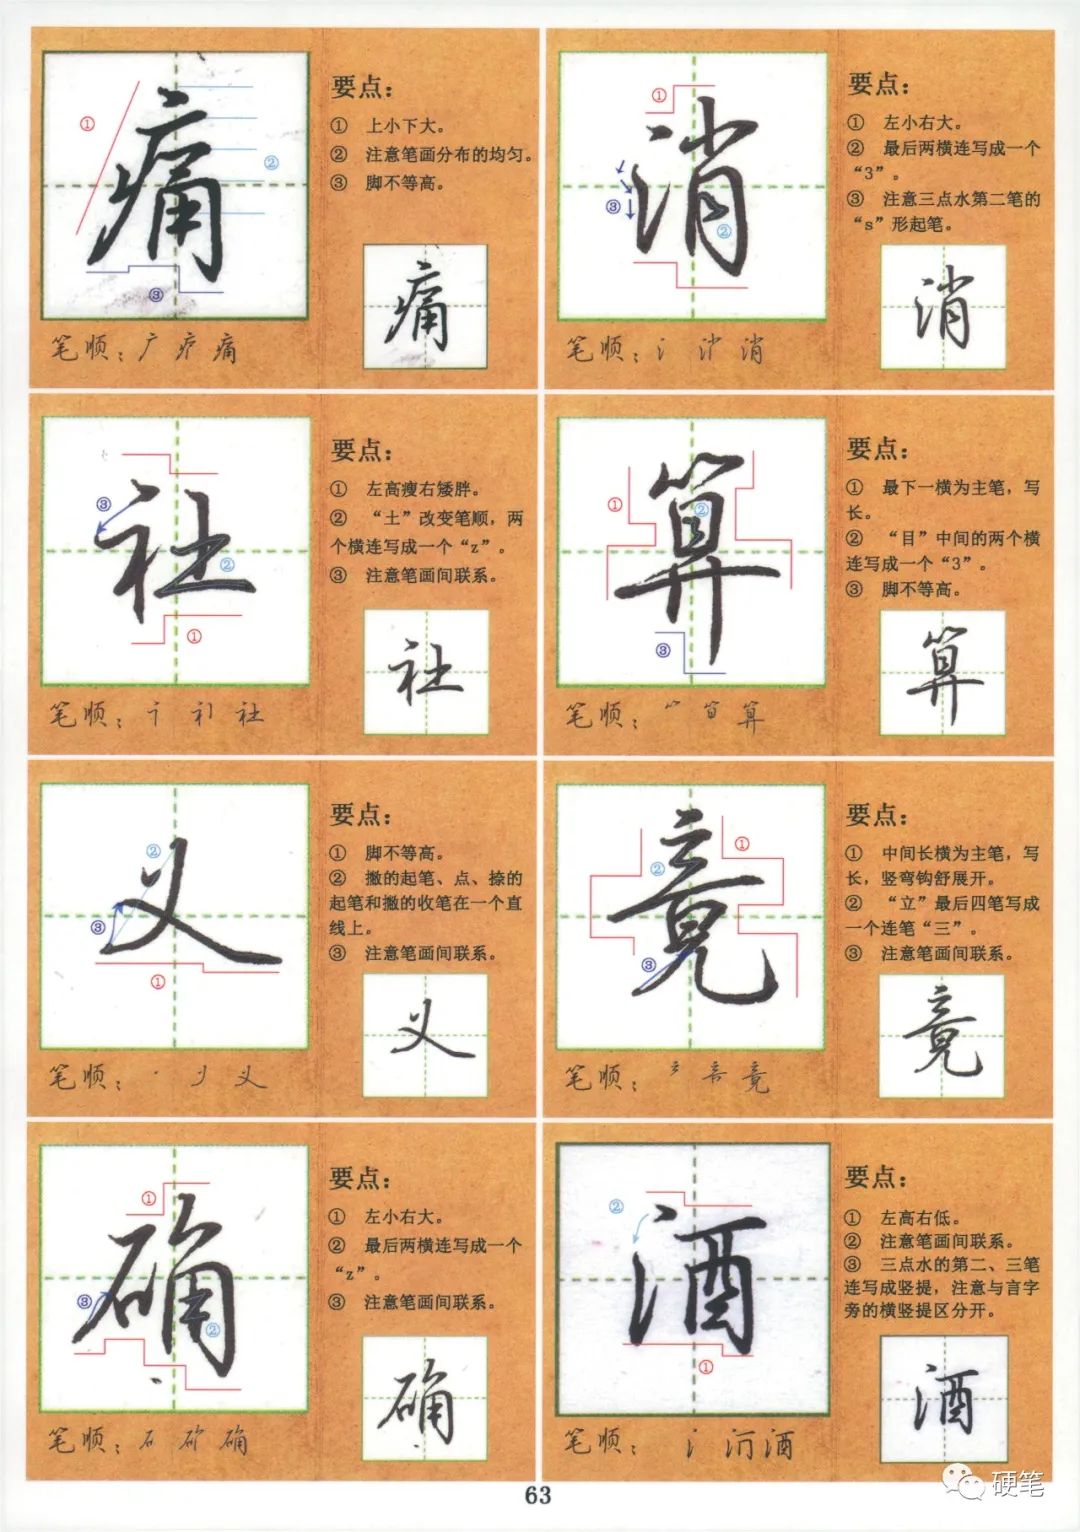 痛
①
②
③
要点：
① 上小下大。
② 注意笔画分布的均匀。
③ 脚不等高。
痛
笔顺：广 疒 痛
消
①
②
③
要点：
① 左小右大。
② 最后两横连写成一个
“3”。
③ 注意三点水第二笔的
“s”形起笔。
消
笔顺：氵 氵 消
社
③
②
①
要点：
① 左高瘦右矮胖。
② “土”改变笔顺，两
个横连写成一个“z”。
③ 注意笔画间联系。
社
笔顺：礻 社
算
①
②
③
要点：
① 最下一横为主笔，写
长。
② “目”中间的两个横
连写成一个“3”。
③ 脚不等高。
算
笔顺：算
义
②
③
①
要点：
① 脚不等高。
② 撇的起笔、点、捺的
起笔和撇的收笔在一个直
线上。
③ 注意笔画间联系。
义
笔顺：丶 义
竟
①
②
③
要点：
① 中间长横为主笔，写
长，竖弯钩舒展开。
② “立”最后四笔写成
一个连笔“三”。
③ 注意笔画间联系。
竟
笔顺：立 音 竟
确
①
③
②
要点：
① 左小右大。
② 最后两横连写成一个
“z”。
③ 注意笔画间联系。
确
笔顺：石 确
酒
②
①
要点：
① 左高右低。
② 注意笔画间联系。
③ 三点水的第二、三笔
连写成竖提，注意与言字
旁的横竖提区分开。
酒
笔顺：氵 酒
硬笔
63